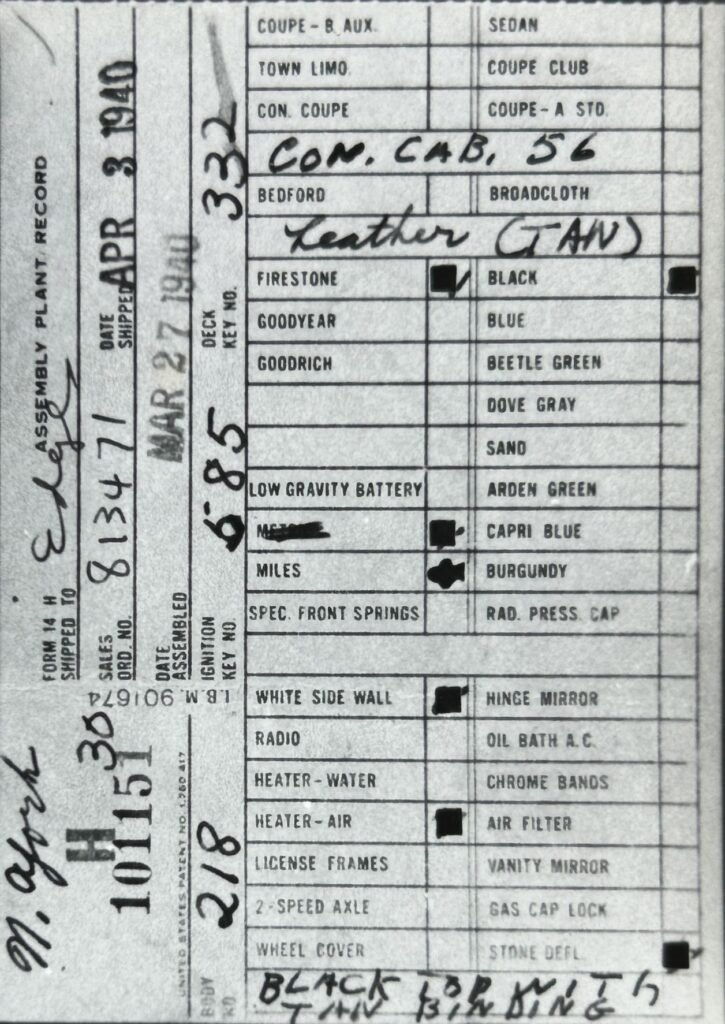 COUPE-B AUX.
SEDAN
TOWN LIMO.
COUPE CLUB
CON. COUPE
COUPE-A STD.
CON. CAB. 56
BEDFORD
BROADCLOTH
Leather (TAN)
FIRESTONE
BLACK
GOODYEAR
BLUE
GOODRICH
BEETLE GREEN
DOVE GRAY
SAND
LOW GRAVITY BATTERY
ARDEN GREEN
CAPRI BLUE
MILES
BURGUNDY
SPEC. FRONT SPRINGS
RAD. PRESS. CAP
WHITE SIDE WALL
HINGE MIRROR
RADIO
OIL BATH A.C.
HEATER-WATER
CHROME BANDS
HEATER-AIR
AIR FILTER
LICENSE FRAMES
VANITY MIRROR
2-SPEED AXLE
GAS CAP LOCK
WHEEL COVER
STONE DEFL.
BLACK TOP WITH
TAN BINDING
ASSEMBLY PLANT RECORD
FORM 14 H
SHIPPED TO
SALES
ORD. NO. 813471
DATE
SHIPPED APR 3 1940
DATE
ASSEMBLED
MAR 27 1940
IGNITION
KEY NO. 685
DECK
KEY NO. 332
I.B.M. 901674
H
30
101151
UNITED STATES PATENT NO. 1,780,417
BODY
NO. 218